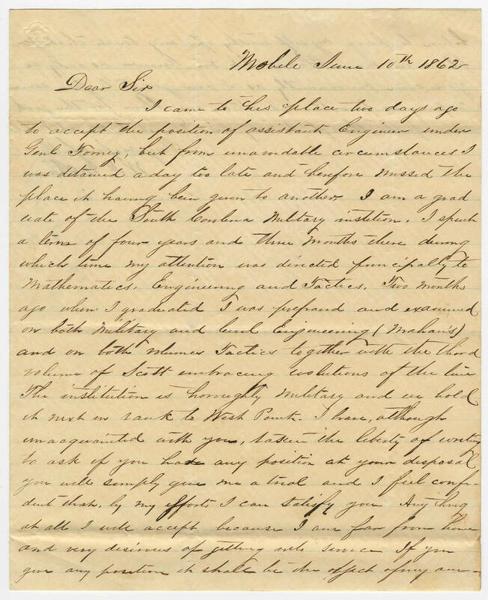 Mobile June 10th 1862
Dear Sir
I came to this place two days ago
to accept the position of assistant Engineer under
Genl Forney, but from unavoidable circumstances I
was detained a day too late and therefore missed the
place it having been given to another. I am a grad
uate of the South Carolina Military instition. I spent
a term of four years and three months there during
which time my attention was directed principally to
Mathematics, Engineering and Tactics. Two months
ago when I graduated I was prepared and examined
on both Military and Civil Engineering (Mahan's)
and on both volumes Tactics together with the third
volume of Scott embracing evolutions of the line
The institution is thoroughly Military and we hold
it next in rank to West Point. I have, although
unacquainted with you, taken the liberty of writing
to ask if you have any position at your disposal
you will simply give me a trial and I feel conf-
ident that, by my efforts I can satisfy you Any thing
at all I will accept because I am far from home
and very desirous of getting into service If you
give any position it shall be the object of my